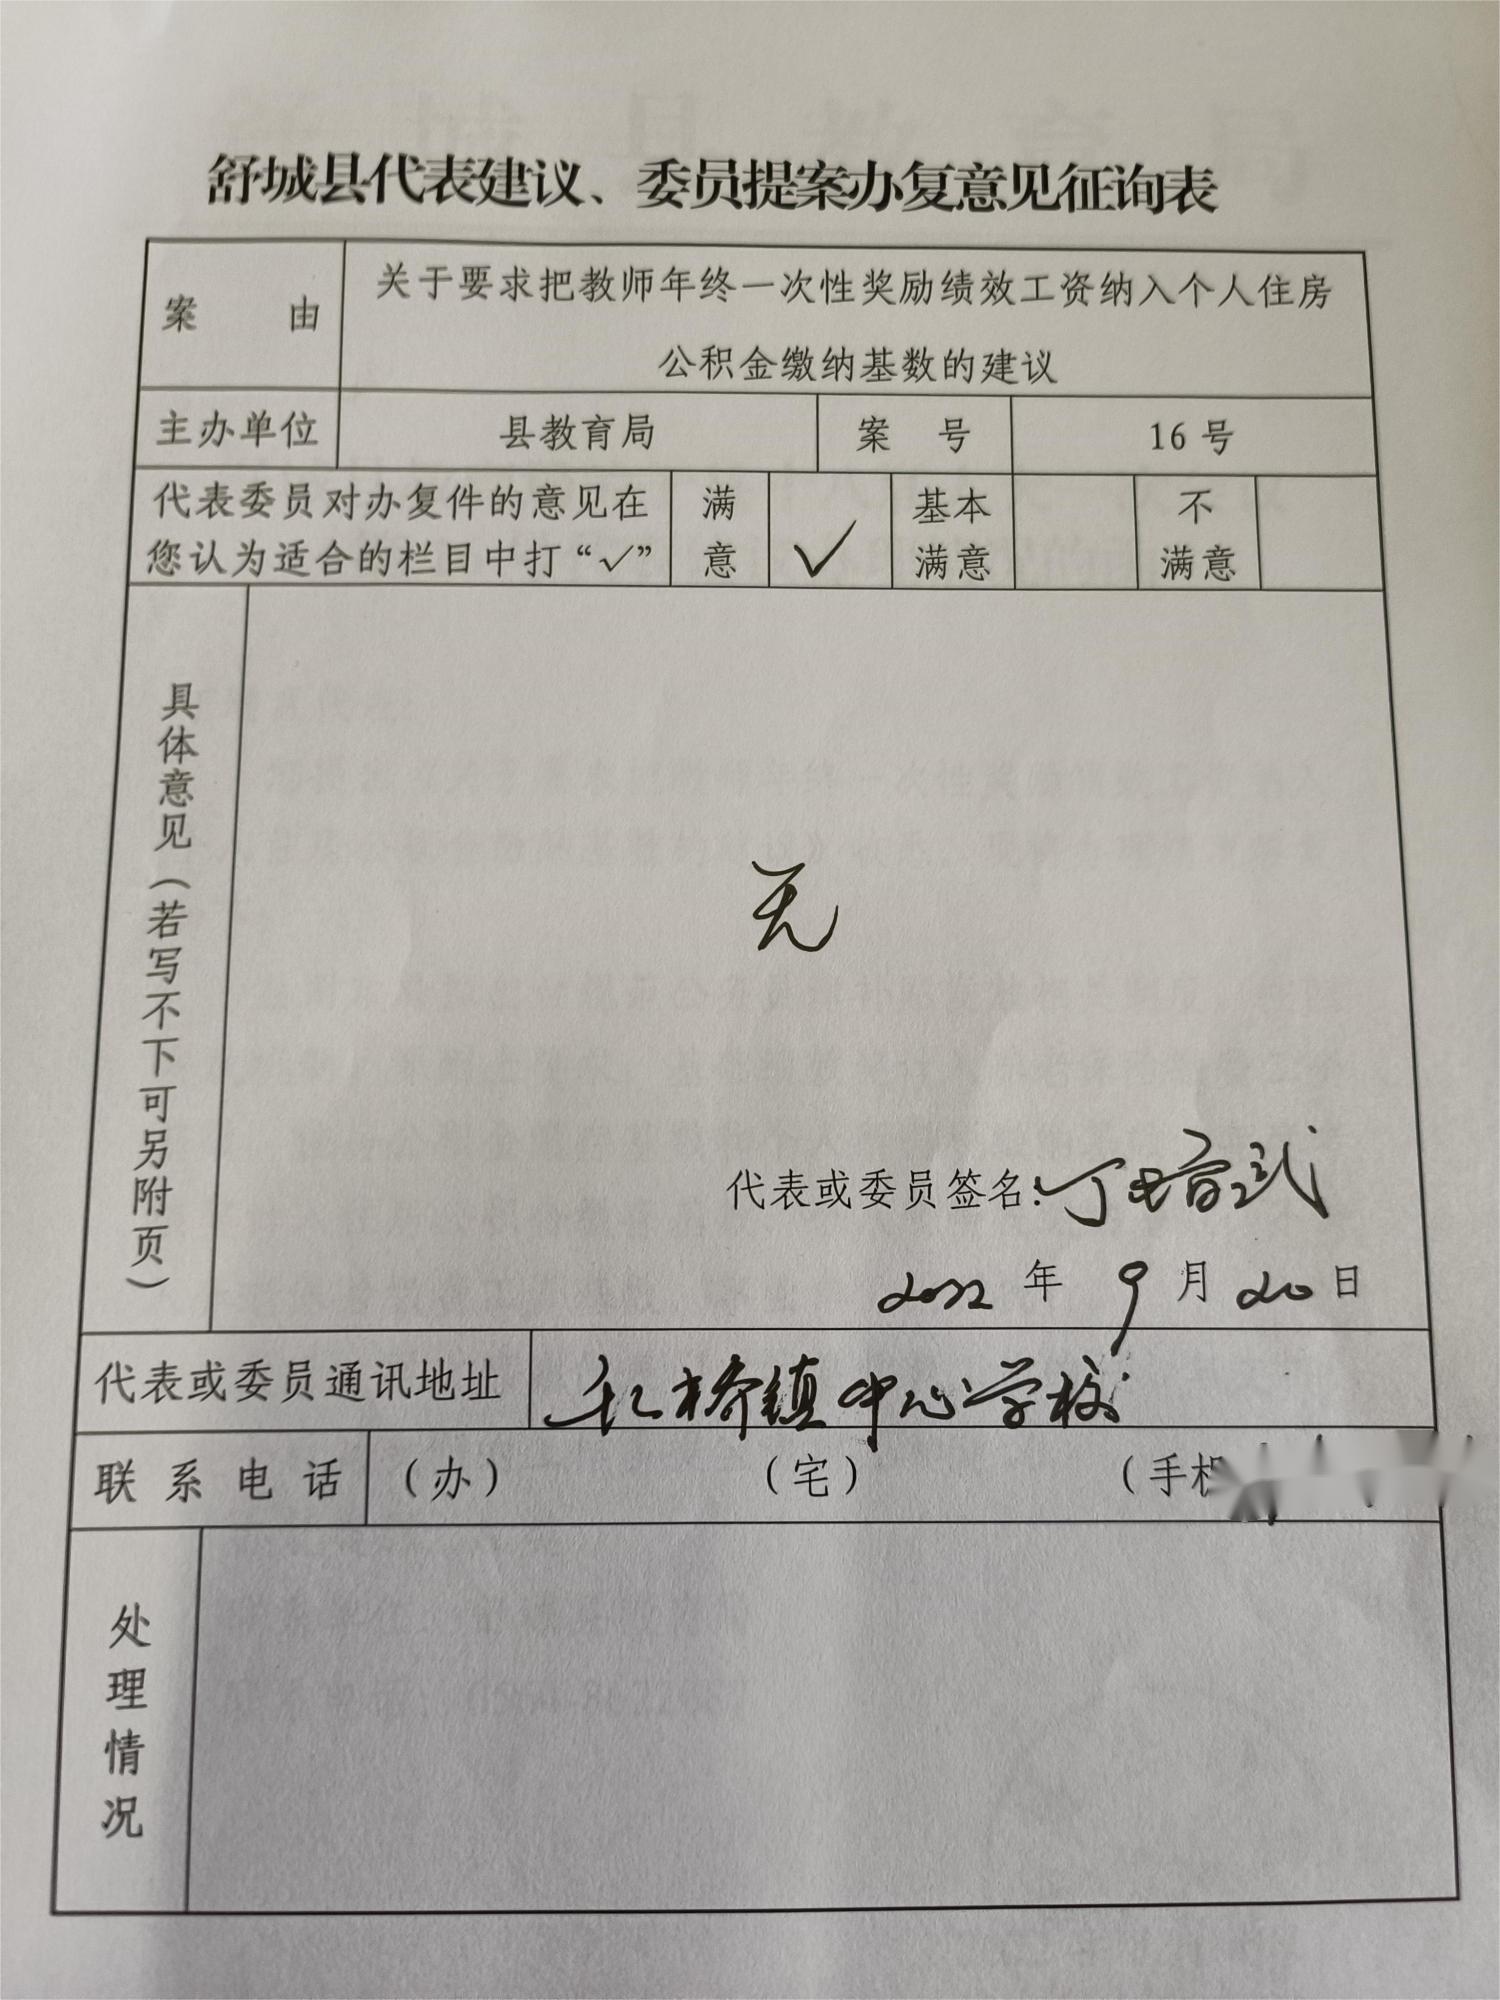 舒城县代表建议、委员提案办复意见征询表
案 由
关于要求把教师年终一次性奖励绩效工资纳入个人住房
公积金缴纳基数的建议
主办单位 县教育局 案 号 16号
代表委员对办复件的意见在
您认为适合的栏目中打“√”
满意 √ 基本满意 不满意
具体意见（若写不下可另附页）
无
代表或委员签名: 丁
2022 年 9 月 20 日
代表或委员通讯地址 桥镇中心学校
联系电话 （办） （宅） （手机
处理情况